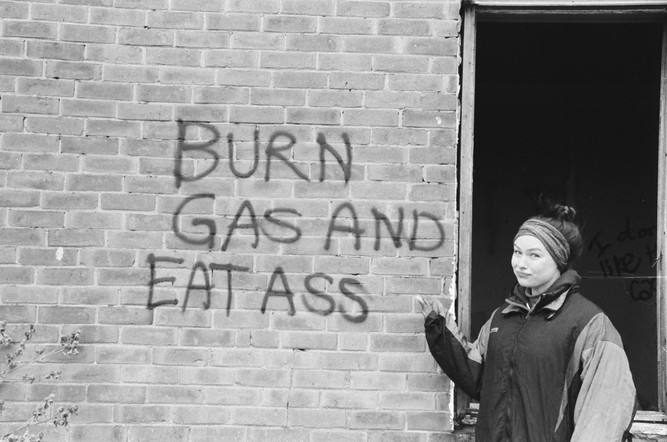 BURN
GAS AND
EAT ASS
I don
like